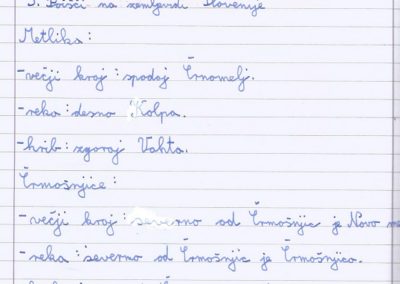 3. Poišči na zemljevidu Slovenije
Metlika:
-večji kraj: spodaj Črnomelj.
-reka: desno Kolpa.
-hrib: zgoraj Vahta.
Črmošnjice:
-večji kraj: severno od Črmošnjic je Novo me
-reka: severno od Črmošnjic je Črmošnjica.